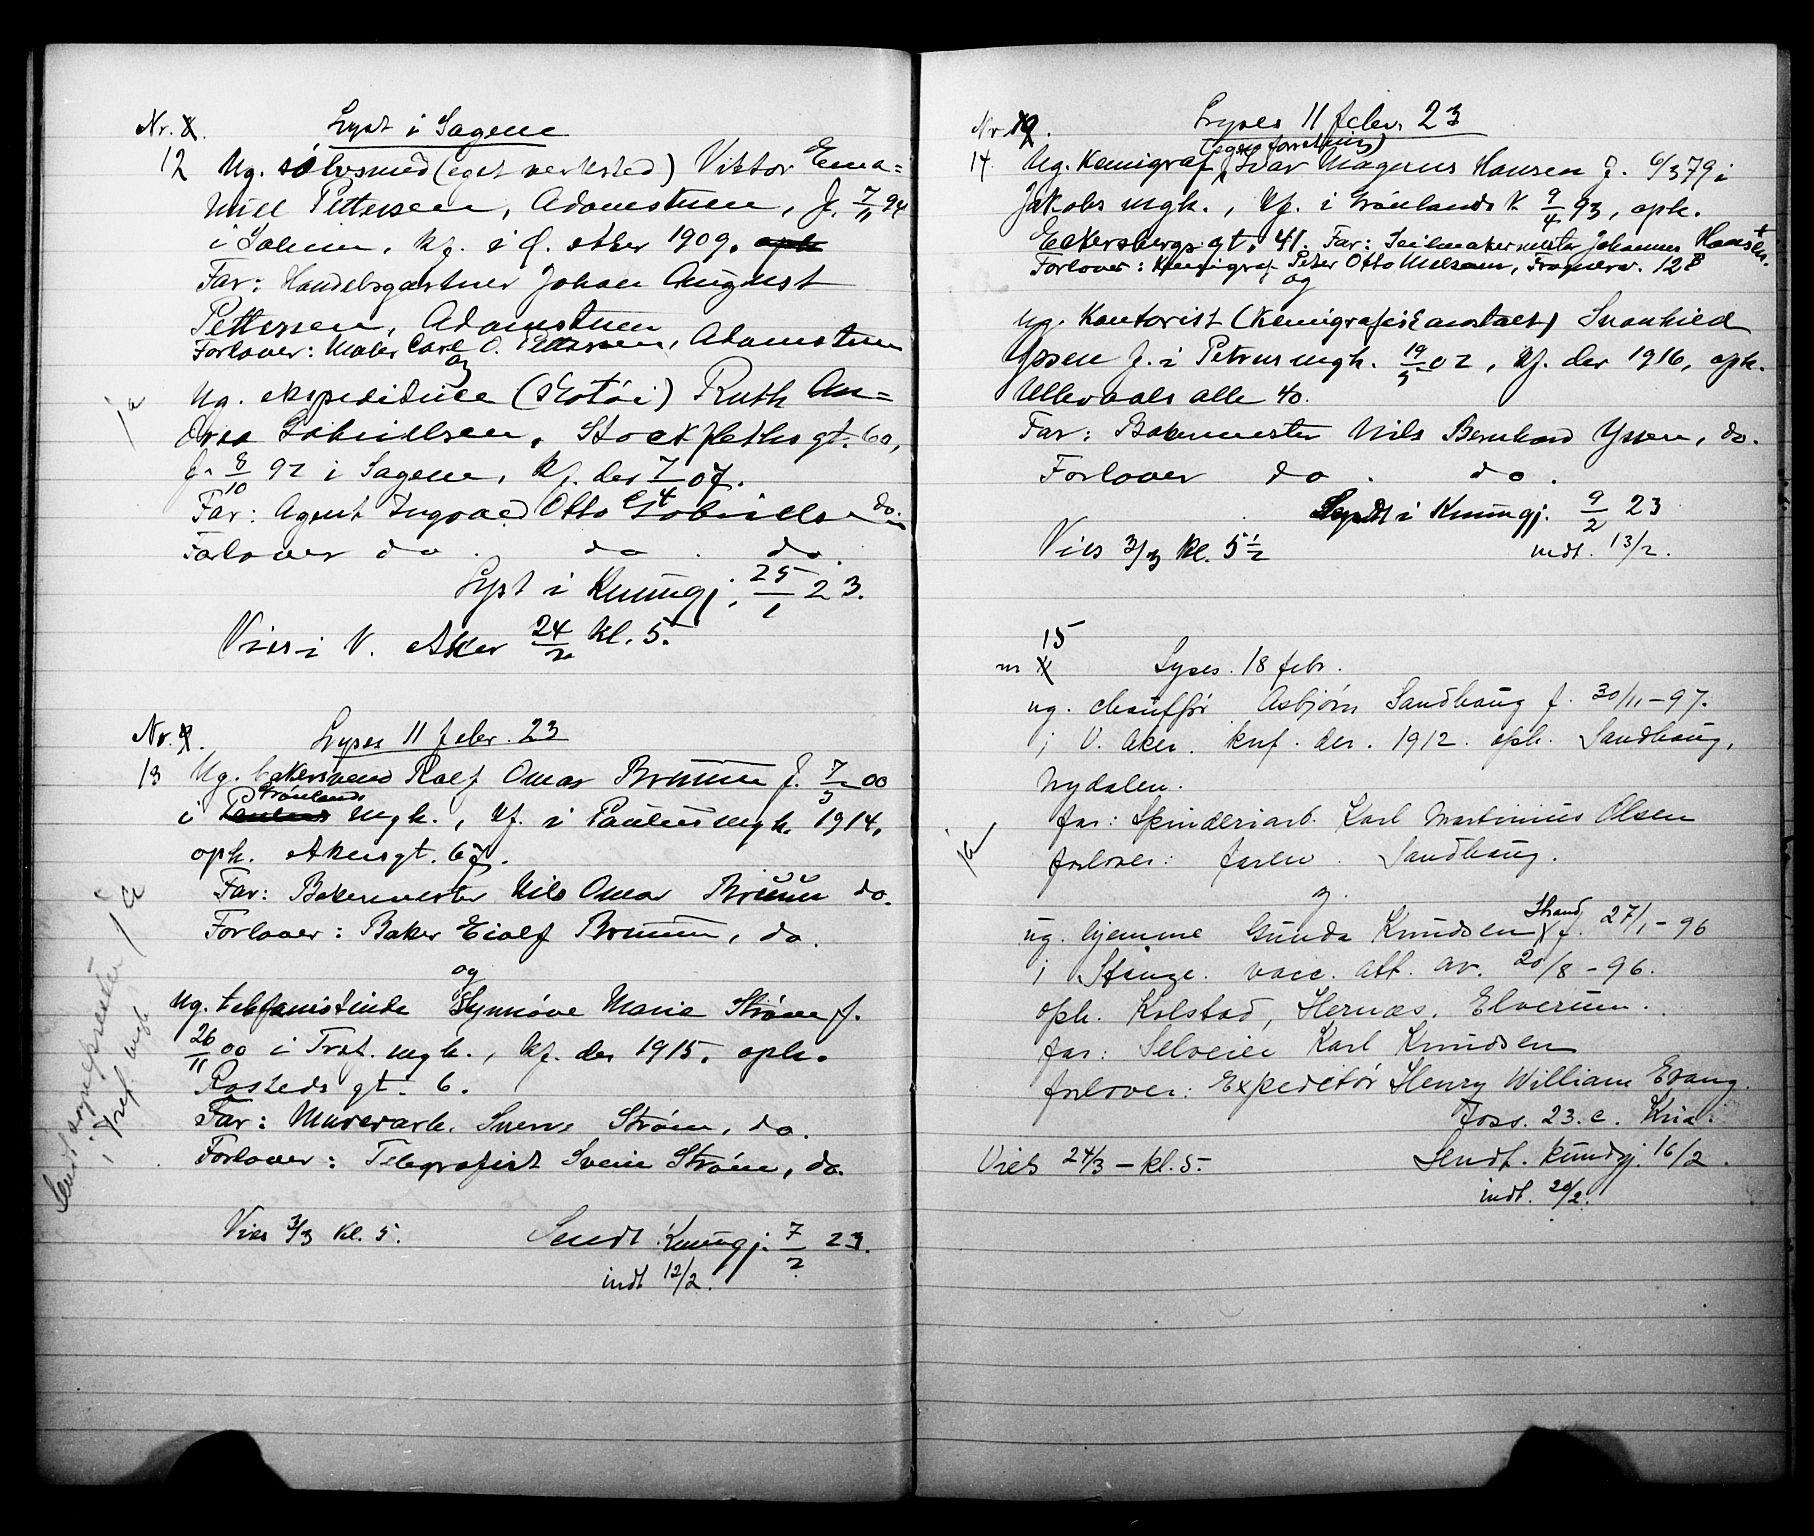 Nr. 8. Lyst i Sagene
12 Ug. sølvsmed (eget verksted) Viktor Ema=
nuel Pettersen, Adamstuen, f. 7/11 94
i Solum, kf. i Ø. Aker 1909. oph
Far: Handelsgartner Johan August
Pettersen, Adamstuen
Forlover: Maler Carl O. Pettersen, Adamstuen
og
ja
Ug. ekspeditrice (skotøi) Ruth An=
drea Gabrielsen, Stockflethsgt. 60,
f. 8/10 92 i Sagene, kf. der 7/4 07.
Far: Agent Ingvald Otto Gabrielsen do.
Forlover do. do. do.
Lyst i Kunngj. 25/1 23.
Vies i V. Aker 24/2 kl. 5.
Nr. 9. Lyses 11 febr. 23
13 Ug. bakersvend Rolf Omar Bruun f. 7/3 00
Grønlands
i Paulus mgh., kf. i Paulus mgh. 1914,
oph. Akersgt. 67.
Far: Bakermester Nils Omar Bruun do.
Forlover: Baker Eiolf Bruun, do.
og
Ug. telefonistinde Synnøve Marie Strøm f.
26/11 00 i Tref. mgh., kf. der 1915. oph.
Rosteds gt. 6.
Far: Murerarb. Sverre Strøm, do.
Forlover: Telegrafist Svein Strøm, do.
Vies 3/3 kl. 5. Sendt Kunngj. 7/2 23.
indt 12/2.
ja
i Tref. mgh.
Nr. 10. Lyses 11 febr. 23
(egen forretning)
14. Ug. Kemigraf Ivar Magnus Hansen f. 6/3 79 i
Jakobs mgh., kf. i Grønlands k 9/4 93, oph.
Eckersbergs gt. 41. Far: Seilmakermester Johannes Hansen.
Forlover: Kemigraf Peter Otto Nielsen, Fragnerv. 12 B
og
ug. Kontorist (Kemigrafisk anstalt) Svanhild
Yssen f. i Petrus mgh. 19/5 02, kf. der 1916, oph.
Ullevaals alle 40.
Far: Bakermester Nils Bernhard Yssen, do.
Forlover do. do.
Sendt i Kunngj. 9/2 23
Vies 3/3 kl. 5 1/2 indt. 13/2.
15
nr Lyses. 18 febr.
ug. chauffør Asbjørn Sandhaug f. 30/11-97.
i V. Aker. knf. der. 1912. oph. Sandhaug,
Nydalen.
far: Spinderiarb. Karl Martinius Olsen
ja
forlover: faren. Sandhaug.
og
Strand
ug. hjemme Gunda Knudsen f. 27/1-96
i Stange. vacc. att. av. 20/8-96.
oph. Kolstad, Hernæs, Elverum.
far: Selveier Karl Knudsen
forlover: Expeditør Henry William Evang.
Foss. 23. c. Kria.
Vies 24/3 - kl. 5. Sendt. kundgj. 16/2.
indt. 20/2.